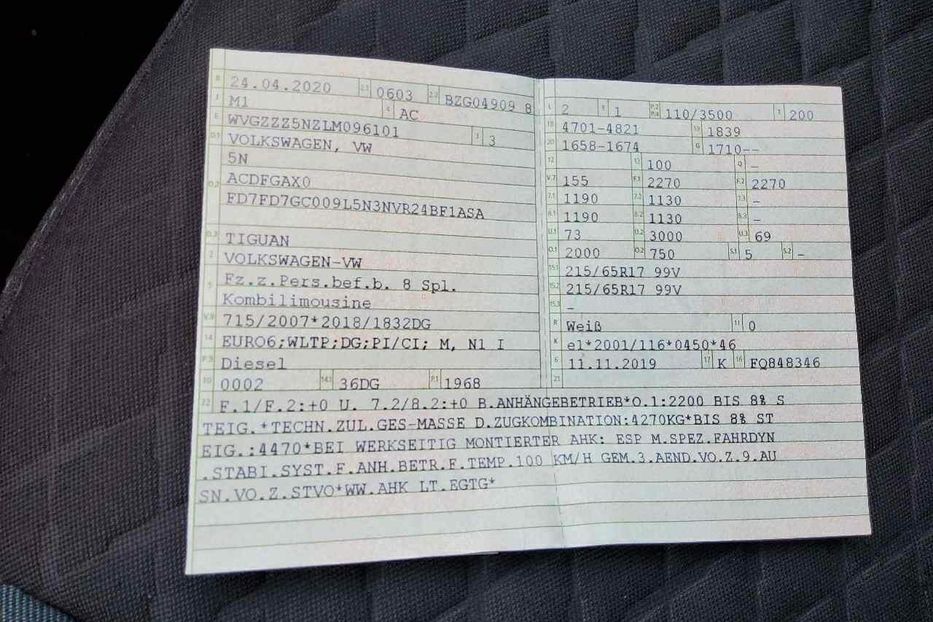 B 24.04.2020 2.1 0603 2.2 BZG04909 8
J M1 4 AC
E WVGZZZ5NZLM096101 3 3
D.1 VOLKSWAGEN, VW
5N
D.2 ACDFGAX0
FD7FD7GC009L5N3NVR24BF1ASA
D.3 TIGUAN
2 VOLKSWAGEN-VW
5 Fz.z.Pers.bef.b. 8 Spl.
Kombilimousine
V.9 715/2007*2018/1832DG
14 EURO6;WLTP;DG;PI/CI; M, N1 I
P.3 Diesel
10 0002 14.1 36DG P.1 1968
L 2 9 1 P.2 P.4 110/3500 T 200
18 4701-4821 19 1839
20 1658-1674 G 1710--
12 - 13 100 Q -
V.7 155 F.1 2270 F.2 2270
7.1 1190 7.2 1130 7.3 -
8.1 1190 8.2 1130 8.3 -
U.1 73 U.2 3000 U.3 69
O.1 2000 O.2 750 S.1 5 S.2 -
15.1 215/65R17 99V
15.2 215/65R17 99V
15.3 -
R Weiß 11 0
K e1*2001/116*0450*46
6 11.11.2019 17 K 16 FQ848346
21
22 F.1/F.2:+0 U. 7.2/8.2:+0 B.ANHÄNGEBETRIEB*O.1:2200 BIS 8% S
TEIG.*TECHN.ZUL.GES-MASSE D.ZUGKOMBINATION:4270KG*BIS 8% ST
EIG.:4470*BEI WERKSEITIG MONTIERTER AHK: ESP M.SPEZ.FAHRDYN
.STABI.SYST.F.ANH.BETR.F.TEMP.100 KM/H GEM.3.AEND.VO.Z.9.AU
SN.VO.Z.STVO*WW.AHK LT.EGTG*